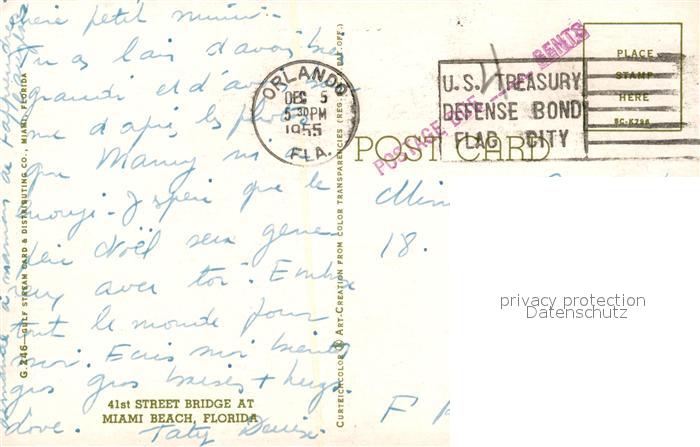 chère petit
Tu as l'air d'avoir bien
grandi et d'avoir
me d'après les photos
que Mamy m'a
J'espère que le
père Noël sera géné
reux avec toi. Embrasse
tout le monde pour
moi. Ecris moi bientôt
gros gros baisers + hugs.
love. Taty Denise
demande à maman de
G.246—GULF STREAM CARD & DISTRIBUTING CO., MIAMI, FLORIDA
41st STREET BRIDGE AT
MIAMI BEACH, FLORIDA
CURTEICHCOLOR ® ART-CREATION FROM COLOR TRANSPARENCIES (REG. U.S.A. PAT. OFF.)
ORLANDO
DEC 5
5 30 PM
1955
FLA.
U.S. TREASURY
DEFENSE BOND
FLAG CITY
POSTAGE DUE CENTS
POST CARD
PLACE
STAMP
HERE
5C-K796
18.
F
privacy protection
Datenschutz